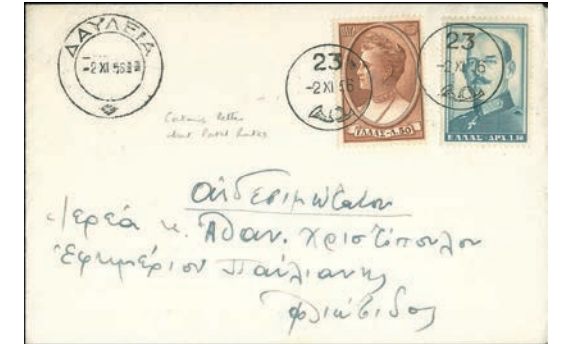 ΔΑΥΛΕΙΑ
-2 XI 56
23
-2 XI 56
ΕΛΛΑΣ-Λ.50
23
-2 XI 56
ΕΛΛΑΣ-ΔΡΧ.1.50
Contains letter
about Postal Rates
Αἰδεσιμώτατον
Ἱερέα κ. Ἀθαν. Χριστόπουλον
Ἐφημέριον Παύλιανης
Φθιώτιδος